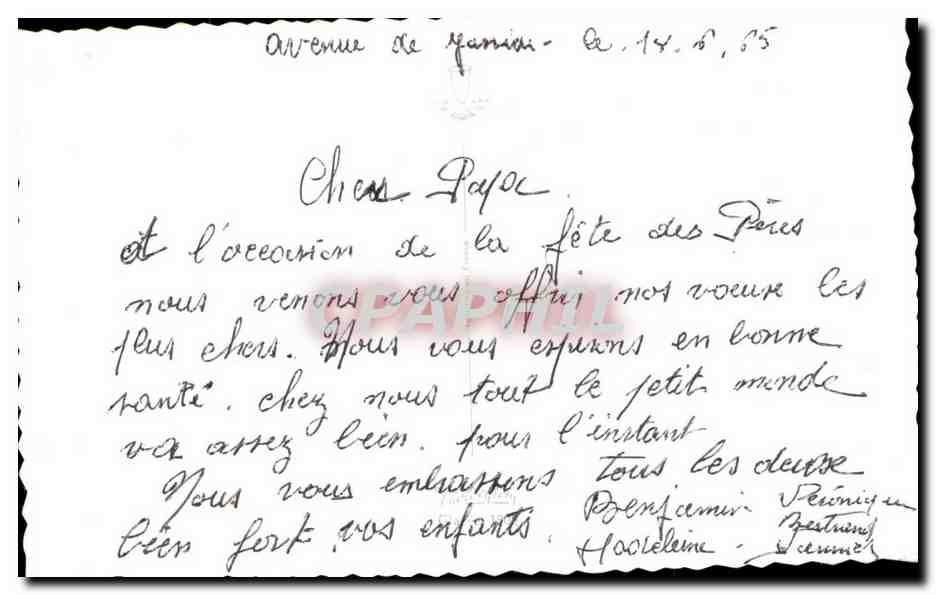 avenue de le 18.6.65
Cher Papa
et l'occasion de la fête des Pères
nous venons vous offrir nos voeux les
plus chers. Nous vous espérons en bonne
santé. chez nous tout le petit monde
va assez bien. pour l'instant
Nous vous embrassons tous les deux
bien fort vos enfants.
Benjamin Véronique
Bertrand
Madeleine -
CPAPHIL